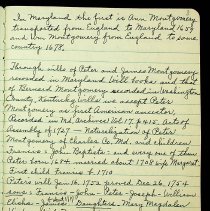 In Maryland the first is Ann Montgomery
transported from England to Maryland 1659
and Wm. Montgomery from England to same
country 1678.
Through wills of Peter and James Montgomery
recorded in Maryland Will books and that
of Bernard Montgomery recorded in Washington
County, Kentucky. Wills we accept Peter
Montgomery as first American ancestor.
Recorded in Md. Archives Vol. 17 p 415 acts of
Assembly of 1727 — Naturalization of Peter
Montgomery of Charles Co. Md. and children
Francis & John Baptiste: and every one of them
Peter born 1684 married about 1708 wife Margaret.
First child Francis b 1710
Peters will Jan. 16, 1752 proved Dec. 26, 1754
sons: Francis - John - Peter - Joseph - William -
James - Daughters, Mary Magdalen